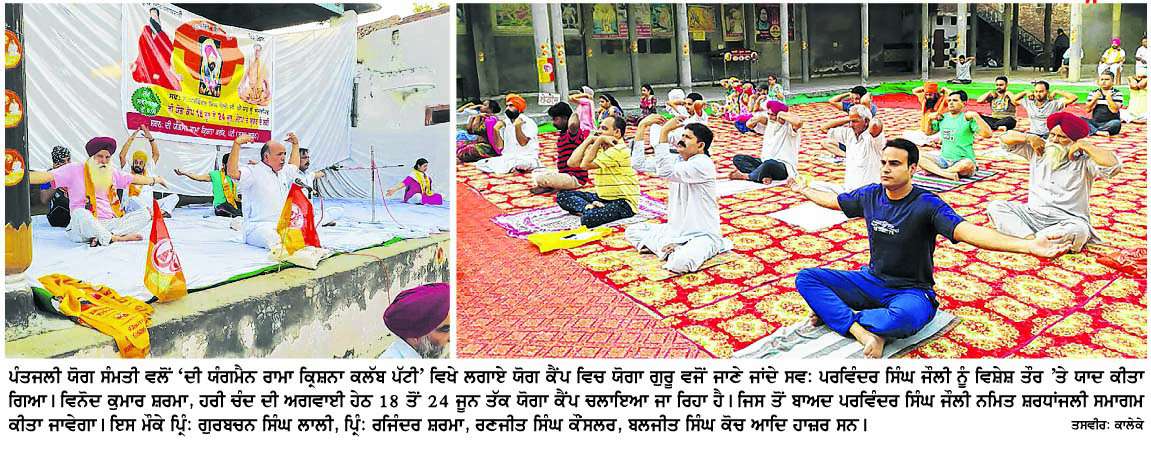 ਪੰਤਜਲੀ ਯੋਗ ਸੰਮਤੀ ਵਲੋਂ ‘ਦੀ ਯੰਗਮੈਨ ਰਾਮਾ ਕ੍ਰਿਸ਼ਨਾ ਕਲੱਬ ਪੱਟੀ’ ਵਿਖੇ ਲਗਾਏ ਯੋਗ ਕੈਂਪ ਵਿਚ ਯੋਗਾ ਗੁਰੂ ਵਜੋਂ ਜਾਣੇ ਜਾਂਦੇ ਸਵ: ਪਰਵਿੰਦਰ ਸਿੰਘ ਜੌਲੀ ਨੂੰ ਵਿਸ਼ੇਸ਼ ਤੌਰ ’ਤੇ ਯਾਦ ਕੀਤਾ
ਗਿਆ। ਵਿਨੋਦ ਕੁਮਾਰ ਸ਼ਰਮਾ, ਹਰੀ ਚੰਦ ਦੀ ਅਗਵਾਈ ਹੇਠ 18 ਤੋਂ 24 ਜੂਨ ਤੱਕ ਯੋਗਾ ਕੈਂਪ ਚਲਾਇਆ ਜਾ ਰਿਹਾ ਹੈ। ਜਿਸ ਤੋਂ ਬਾਅਦ ਪਰਵਿੰਦਰ ਸਿੰਘ ਜੌਲੀ ਨਮਿਤ ਸ਼ਰਧਾਂਜਲੀ ਸਮਾਗਮ
ਕੀਤਾ ਜਾਵੇਗਾ। ਇਸ ਮੌਕੇ ਪ੍ਰਿੰ: ਗੁਰਬਚਨ ਸਿੰਘ ਲਾਲੀ, ਪ੍ਰਿੰ: ਰਜਿੰਦਰ ਸ਼ਰਮਾ, ਰਣਜੀਤ ਸਿੰਘ ਕੌਂਸਲਰ, ਬਲਜੀਤ ਸਿੰਘ ਕੋਚ ਆਦਿ ਹਾਜ਼ਰ ਸਨ।
ਤਸਵੀਰ: ਕਾਲੇਕੇ